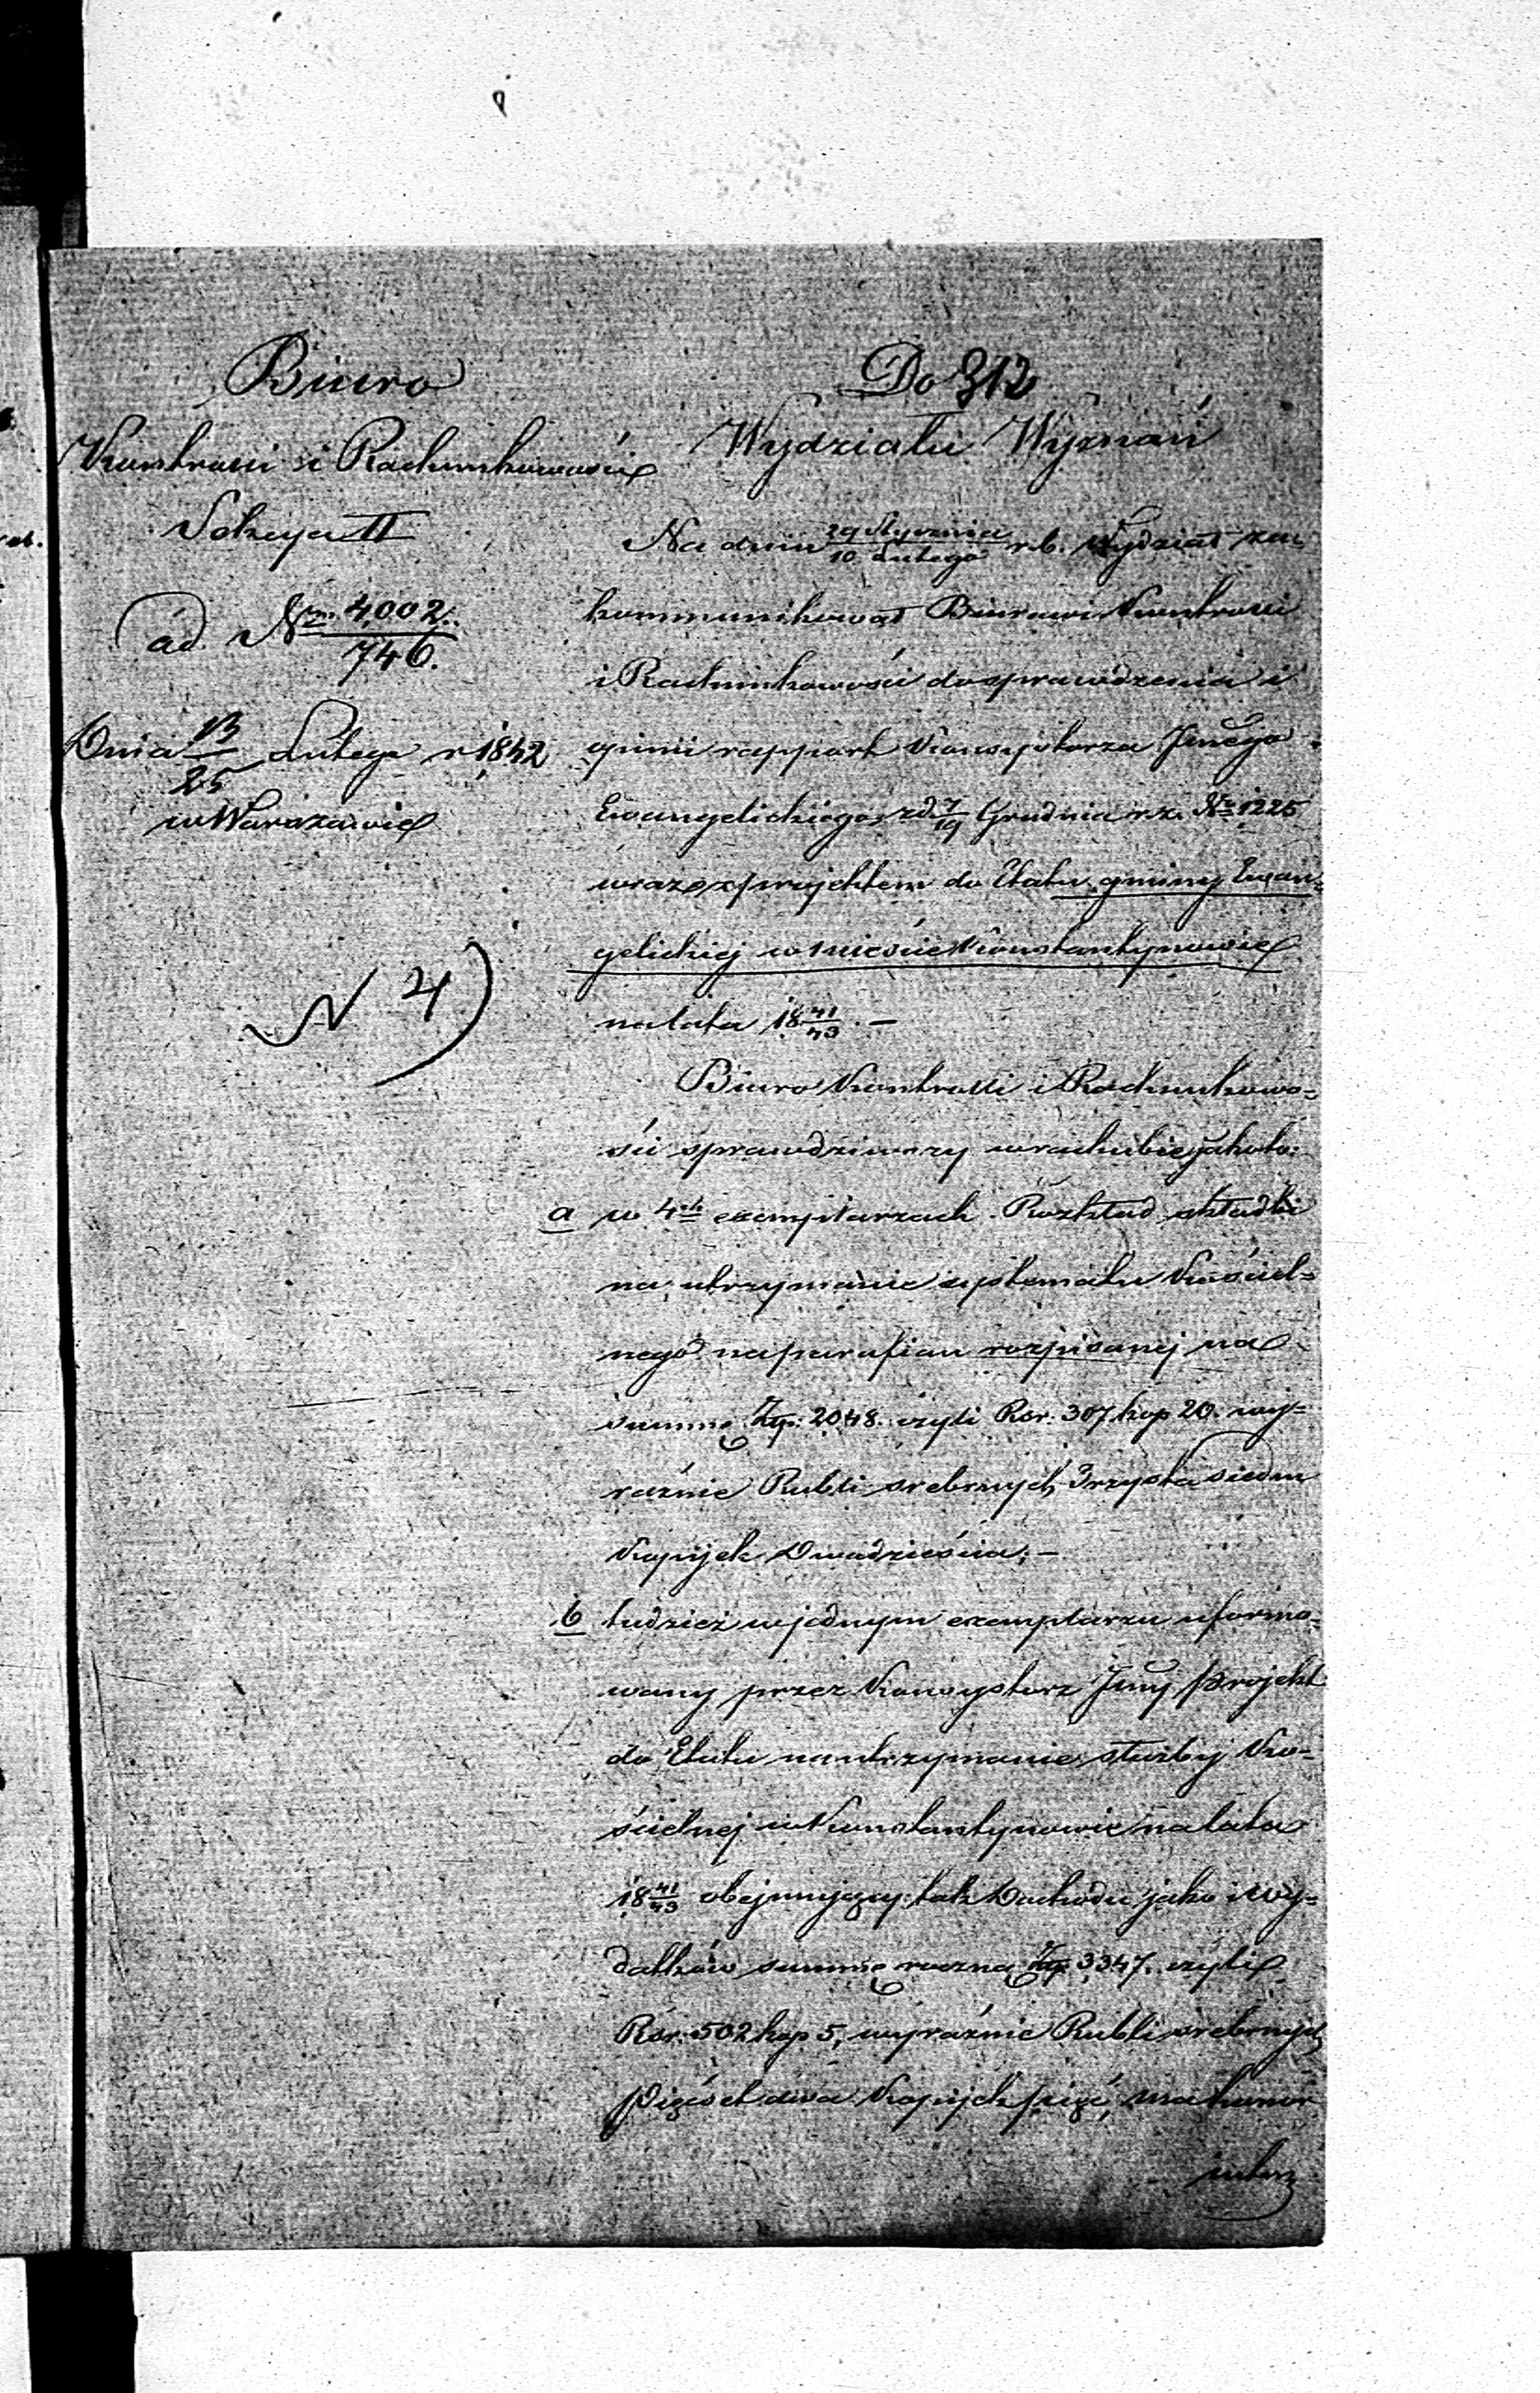 Biuro
Kontrolli i Rachunkowości
Sekcya II
ad Nrm 4,002.
746.
Dnia 13/25 Lutego r 1842
w Warszawie
N 4)
Do 312
Wydziału Wyznań
Na dniu 29 Stycznia/10 Lutego r.b. Wydział za-
kommunikował Biurowi Kontrolli
i Rachunkowości do sprawdzenia i
opinii rapport Konsystorza Jnego
Ewangelickiego z d 7/19 Grudnia r.z. Nr 1225
wraz z projektem do Etatu gminy Ewan-
gelickiej w mieście Konstantynowie
na lata 18 41/43. —
Biuro Kontrolli i Rachunkowo-
ści sprawdziwszy w rachubie jako to:
a w 4ch exemplarzach Rozkład składki
na utrzymanie systematu Kościel-
nego na parafian rozpisanej na
summę Złp: 2048. czyli Rsr: 307 kop 20. wy-
raźnie Rubli srebrnych Trzysta siedm
Kopijek Dwadzieścia; —
b tudzież w jednym exemplarzu uformo-
wany przez Konsystorz Jny projekt
do Etatu na utrzymanie służby Ko-
ścielnej w Konstantynowie na lata
18 41/43 obejmujący tak Dochodu jako i wy-
datków summę roczną Złp 3347. czyli
Rsr: 502 kop 5, wyraźnie Rubli srebrnych
Pięćset dwa Kopijek pięć, ma honor